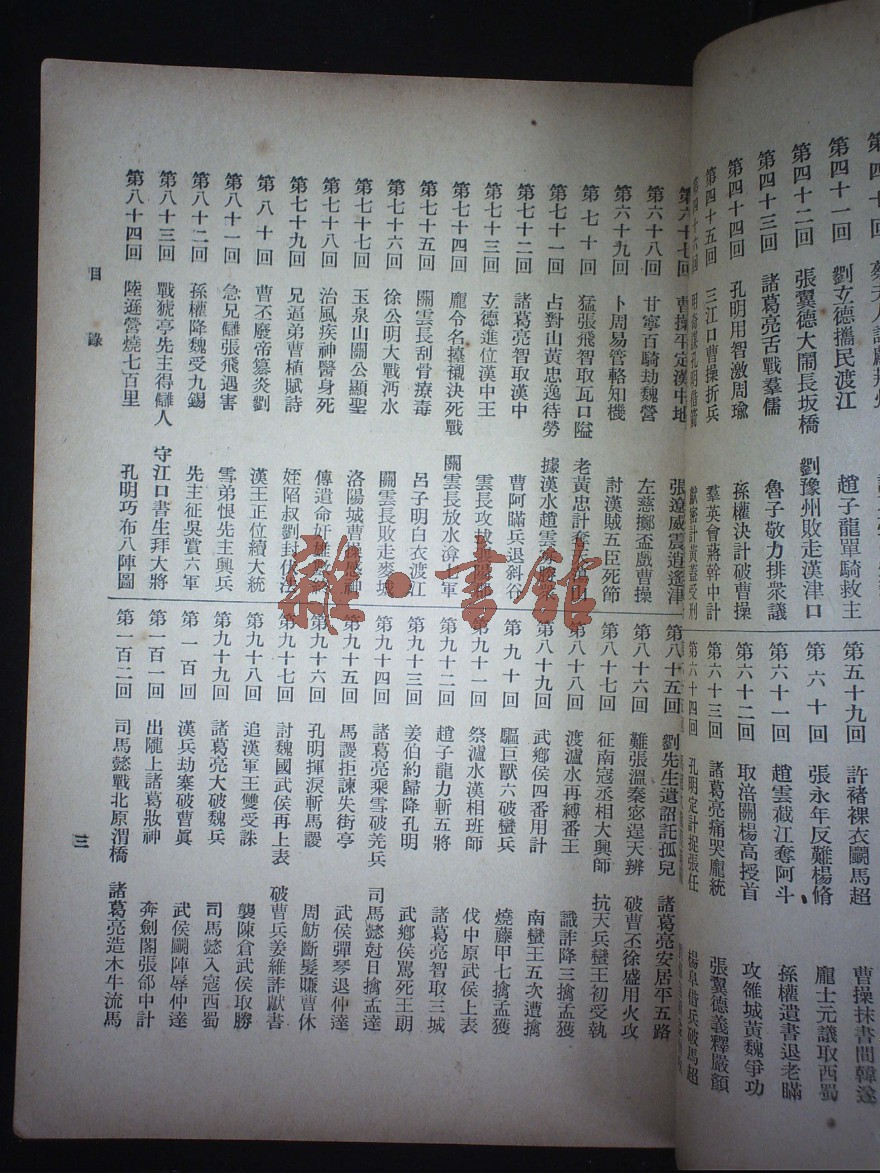 第四十一回 劉玄德攜民渡江 趙子龍單騎救主
第四十二回 張翼德大鬧長坂橋 劉豫州敗走漢津口
第四十三回 諸葛亮舌戰羣儒 魯子敬力排衆議
第四十四回 孔明用智激周瑜 孫權決計破曹操
第四十五回 三江口曹操折兵 羣英會蔣幹中計
第五十九回 許褚裸衣鬭馬超 曹操抹書間韓遂
第六十回 張永年反難楊脩 龐士元議取西蜀
第六十一回 趙雲截江奪阿斗 孫權遺書退老瞞
第六十二回 取涪關楊高授首 攻雒城黃魏爭功
第六十三回 諸葛亮痛哭龐統 張翼德義釋嚴顏
第六十四回 孔明定計捉張任 楊阜借兵破馬超
第六十七回 曹操平定漢中地 張遼威震逍遙津
第六十八回 甘寧百騎劫魏營 左慈擲盃戲曹操
第六十九回 卜周易管輅知機 討漢賊五臣死節
第七十回 猛張飛智取瓦口隘 老黃忠計奪
第七十一回 占對山黃忠逸待勞 據漢水趙雲
第七十二回 諸葛亮智取漢中 曹阿瞞兵退斜谷
第七十三回 玄德進位漢中王 雲長攻
第七十四回 龐令名擡櫬決死戰 關雲長放水渰七軍
第七十五回 關雲長刮骨療毒 呂子明白衣渡江
第七十六回 徐公明大戰沔水 關雲長敗走麥城
第七十七回 玉泉山關公顯聖 洛陽城曹操感神
第七十八回 治風疾神醫身死 傳遺命奸雄
第七十九回 兄逼弟曹植賦詩 姪陷叔劉封伏法
第八十回 曹丕廢帝篡炎劉 漢王正位續大統
第八十一回 急兄讎張飛遇害 雪弟恨先主興兵
第八十二回 孫權降魏受九錫 先主征吳賞六軍
第八十三回 戰猇亭先主得讎人 守江口書生拜大將
第八十四回 陸遜營燒七百里 孔明巧布八陣圖
第八十五回 劉先生遺詔託孤兒 諸葛亮安居平五路
第八十六回 難張溫秦宓逞天辨 破曹丕徐盛用火攻
第八十七回 征南寇丞相大興師 抗天兵蠻王初受執
第八十八回 渡瀘水再縛番王 識詐降三擒孟獲
第八十九回 武鄉侯四番用計 南蠻王五次遭擒
第九十回 驅巨獸六破蠻兵 燒藤甲七擒孟獲
第九十一回 祭瀘水漢相班師 伐中原武侯上表
第九十二回 趙子龍力斬五將 諸葛亮智取三城
第九十三回 姜伯約歸降孔明 武鄉侯罵死王朗
第九十四回 諸葛亮乘雪破羌兵 司馬懿尅日擒孟達
第九十五回 馬謖拒諫失街亭 武侯彈琴退仲達
第九十六回 孔明揮淚斬馬謖 周魴斷髮賺曹休
第九十七回 討魏國武侯再上表 破曹兵姜維詐獻書
第九十八回 追漢軍王雙受誅 襲陳倉武侯取勝
第九十九回 諸葛亮大破魏兵 司馬懿入寇西蜀
第一百回 漢兵劫寨破曹眞 武侯鬭陣辱仲達
第一百一回 出隴上諸葛妝神 奔劍閣張郃中計
第一百二回 司馬懿戰北原渭橋 諸葛亮造木牛流馬
目錄
三
雜·書館